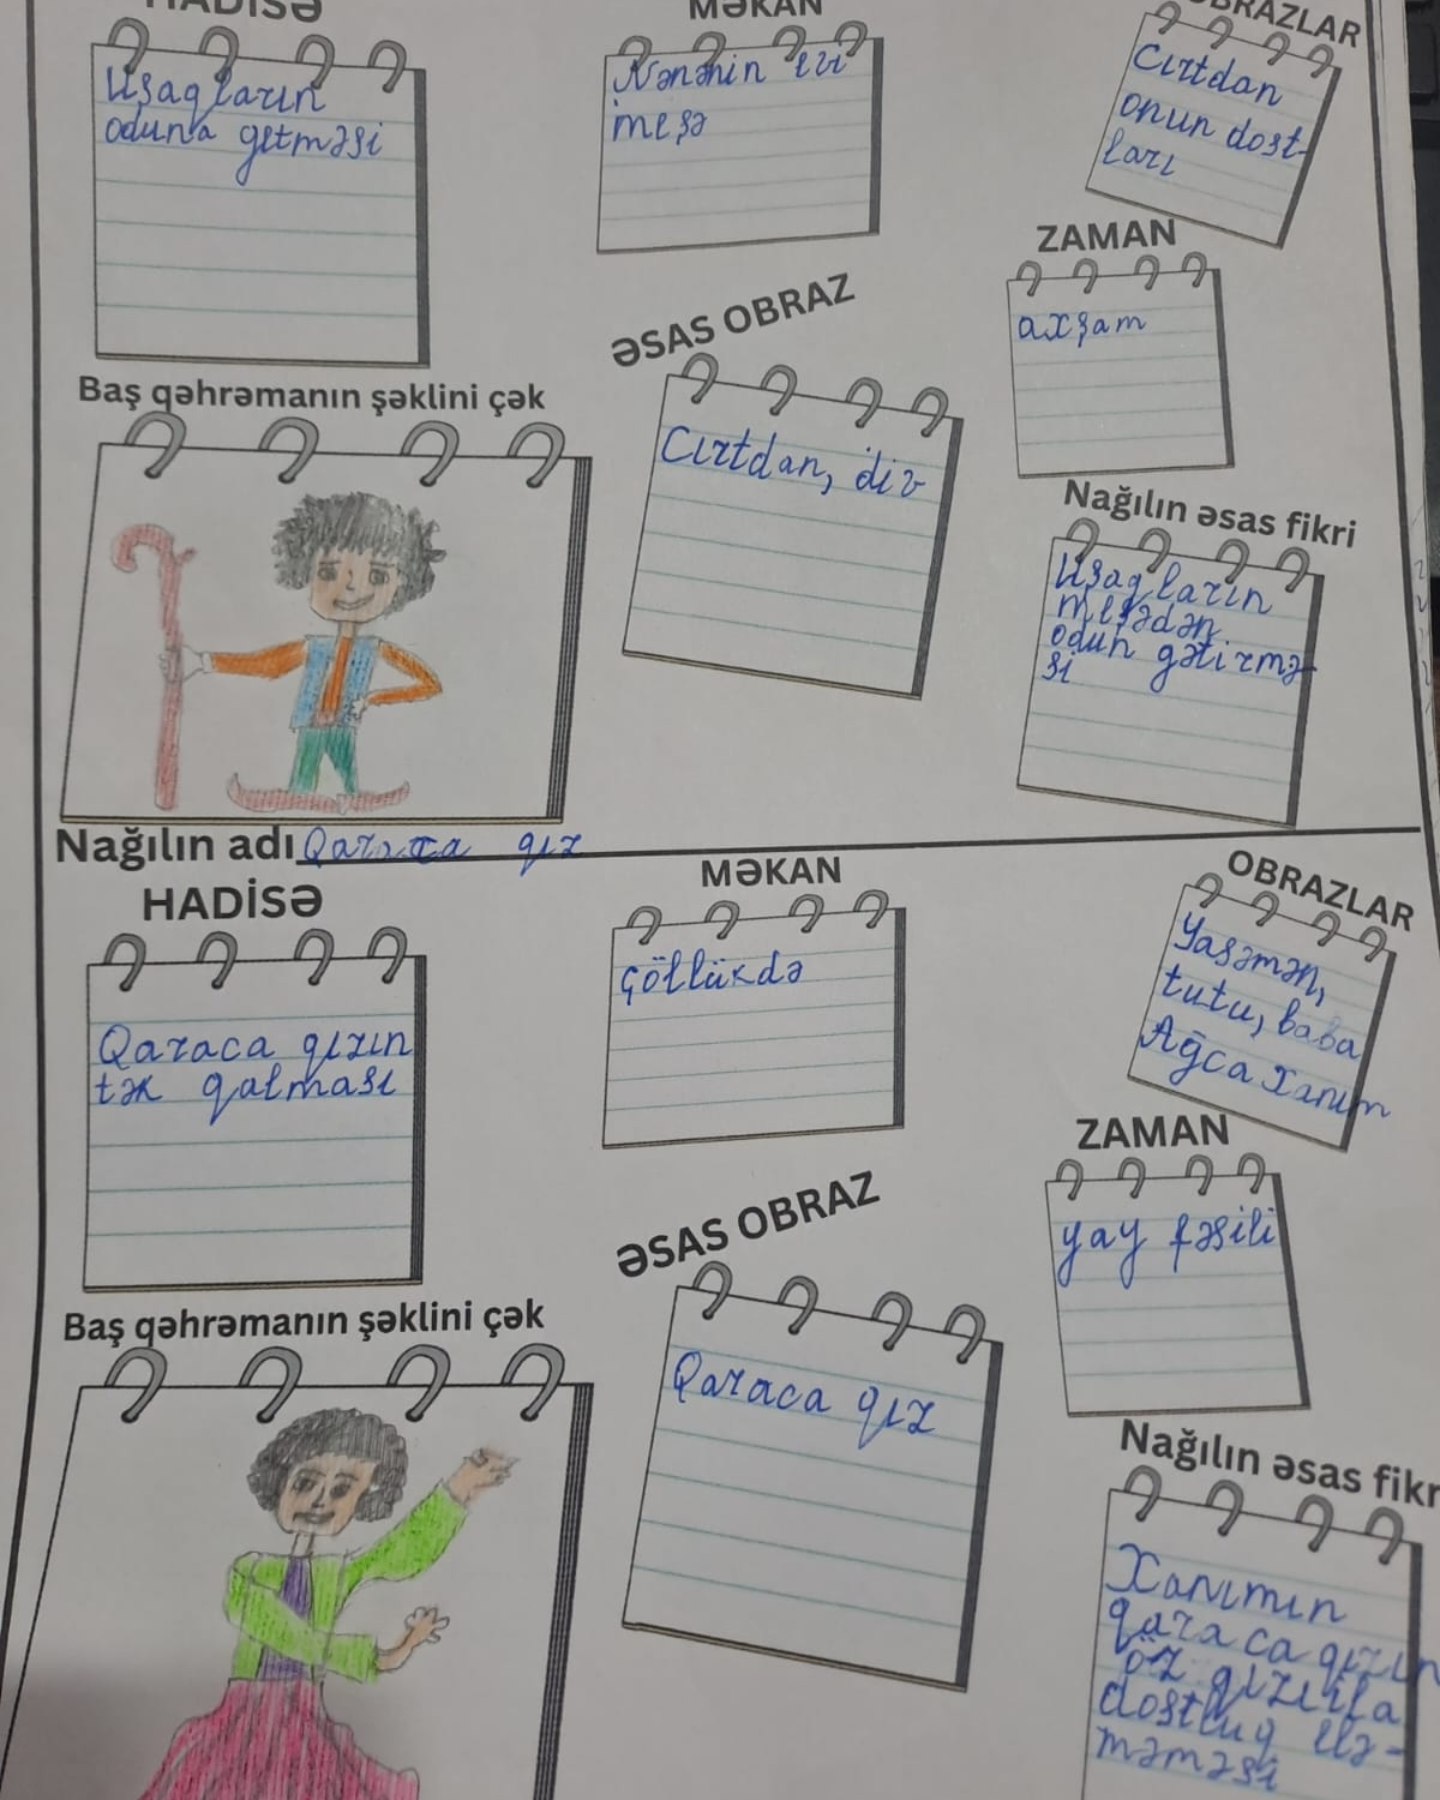 HADİSƏ
Uşaqların
oduna getməsi
MƏKAN
Nənənin evi
meşə
OBRAZLAR
Cırtdan
onun dost-
ları
ZAMAN
axşam
ƏSAS OBRAZ
Cırtdan, div
Baş qəhrəmanın şəklini çək
Nağılın əsas fikri
Uşaqların
meşədən
odun gətirmə-
si
Nağılın adı Qaraca qız
HADİSƏ
Qaraca qızın
tək qalması
MƏKAN
çöllükdə
OBRAZLAR
Yasəmən,
tutu, baba
Ağca xanım
ZAMAN
yay fəsili
ƏSAS OBRAZ
Qaraca qız
Baş qəhrəmanın şəklini çək
Nağılın əsas fikr
Xanımın
qaraca qızın
öz qızıyla
dostluq elə-
məməsi